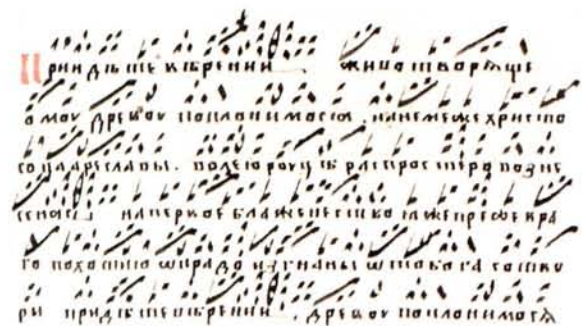 Приидѣте вѣрении животворѧще
омоу древоу поклонимосѧ . нанемеже христо
со царе славы . волею роуцѣ распростеро возне
насо напервое блаженество преже вра
го похотию изгнаны бога сотво
ри придѣте вѣрении . древоу поклонимосѧ